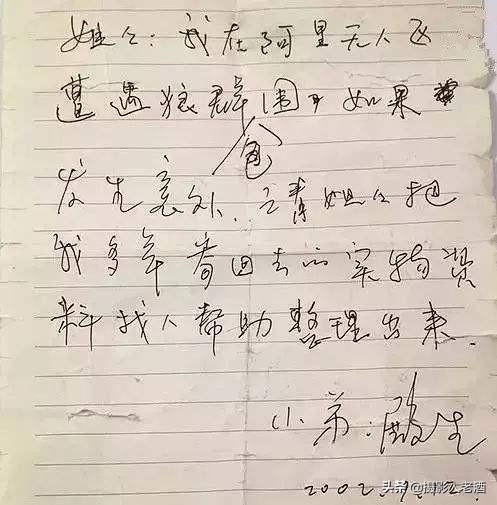 姐々:我在阿里无人区
遭遇狼群包围了如果
发生意外.请姐々把
我多年寄回去的实物资
料找人帮助整理出来.
小弟:殿生
2002.
头条 @摄影么老酒